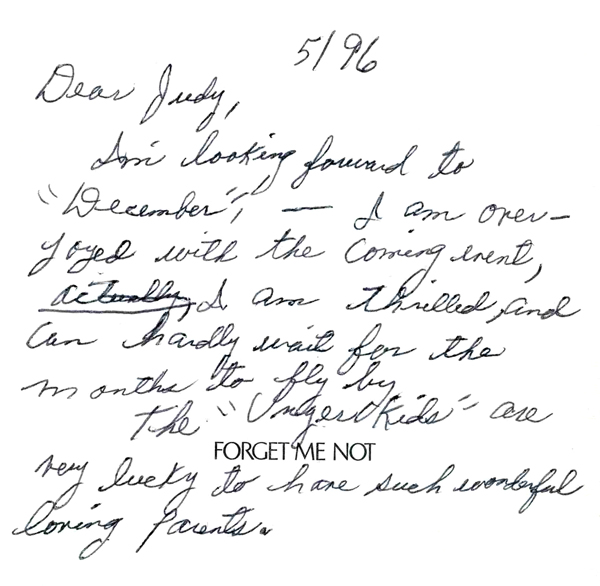 5/96
Dear Judy,
I'm looking forward to
"December", — I am over-
joyed with the coming event,
actually, I am thrilled, and
can hardly wait for the
months to fly by
The "Unger Kids" are
FORGET ME NOT
very lucky to have such wonderful
loving parents.